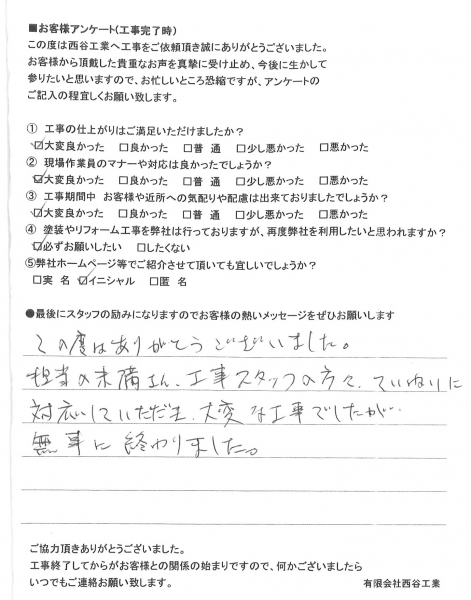 ■お客様アンケート(工事完了時)
この度は西谷工業へ工事をご依頼頂き誠にありがとうございました。
お客様から頂戴した貴重なお声を真摯に受け止め、今後に生かして
参りたいと思いますので、お忙しいところ恐縮ですが、アンケートの
ご記入の程宜しくお願い致します。
① 工事の仕上がりはご満足いただけましたか?
☑大変良かった □良かった □普 通 □少し悪かった □悪かった
② 現場作業員のマナーや対応は良かったでしょうか?
☑大変良かった □良かった □普 通 □少し悪かった □悪かった
③ 工事期間中 お客様や近所への気配りや配慮は出来ておりましたでしょうか?
☑大変良かった □良かった □普 通 □少し悪かった □悪かった
④ 塗装やリフォーム工事を弊社は行っておりますが、再度弊社を利用したいと思われますか?
☑必ずお願いしたい □したくない
⑤弊社ホームページ等でご紹介させて頂いても宜しいでしょうか?
□実 名 ☑イニシャル □匿 名
●最後にスタッフの励みになりますのでお客様の熱いメッセージをぜひお願いします
この度はありがとうございました。
担当の末備さん、工事スタッフの方々、ていねいに
対応していただき 大変な工事でしたが‥
無事に終わりました。
ご協力頂きありがとうございました。
工事終了してからがお客様との関係の始まりですので、何かございましたら
いつでもご連絡お願い致します。 有限会社西谷工業